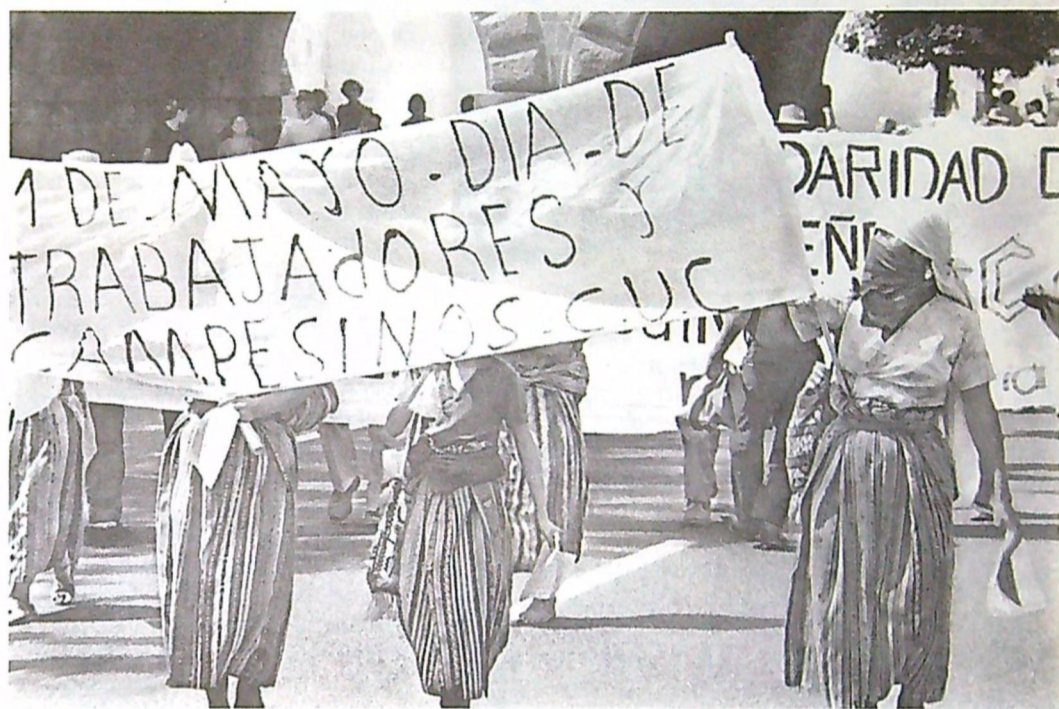 1 DE.MAYO.DIA.DE
TRABAJAdORES Y
CAMPESINOS.C.U.C
DARIDAD D
EÑ